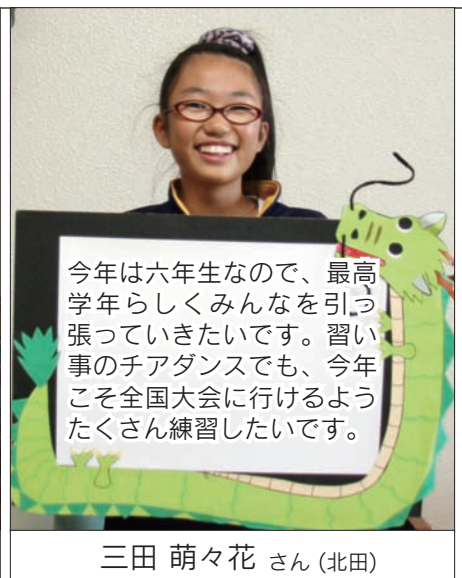 今年は六年生なので、最高
学年らしくみんなを引っ
張っていきたいです。習い
事のチアダンスでも、今年
こそ全国大会に行けるよう
たくさん練習したいです。
三田 萌々花 さん (北田)